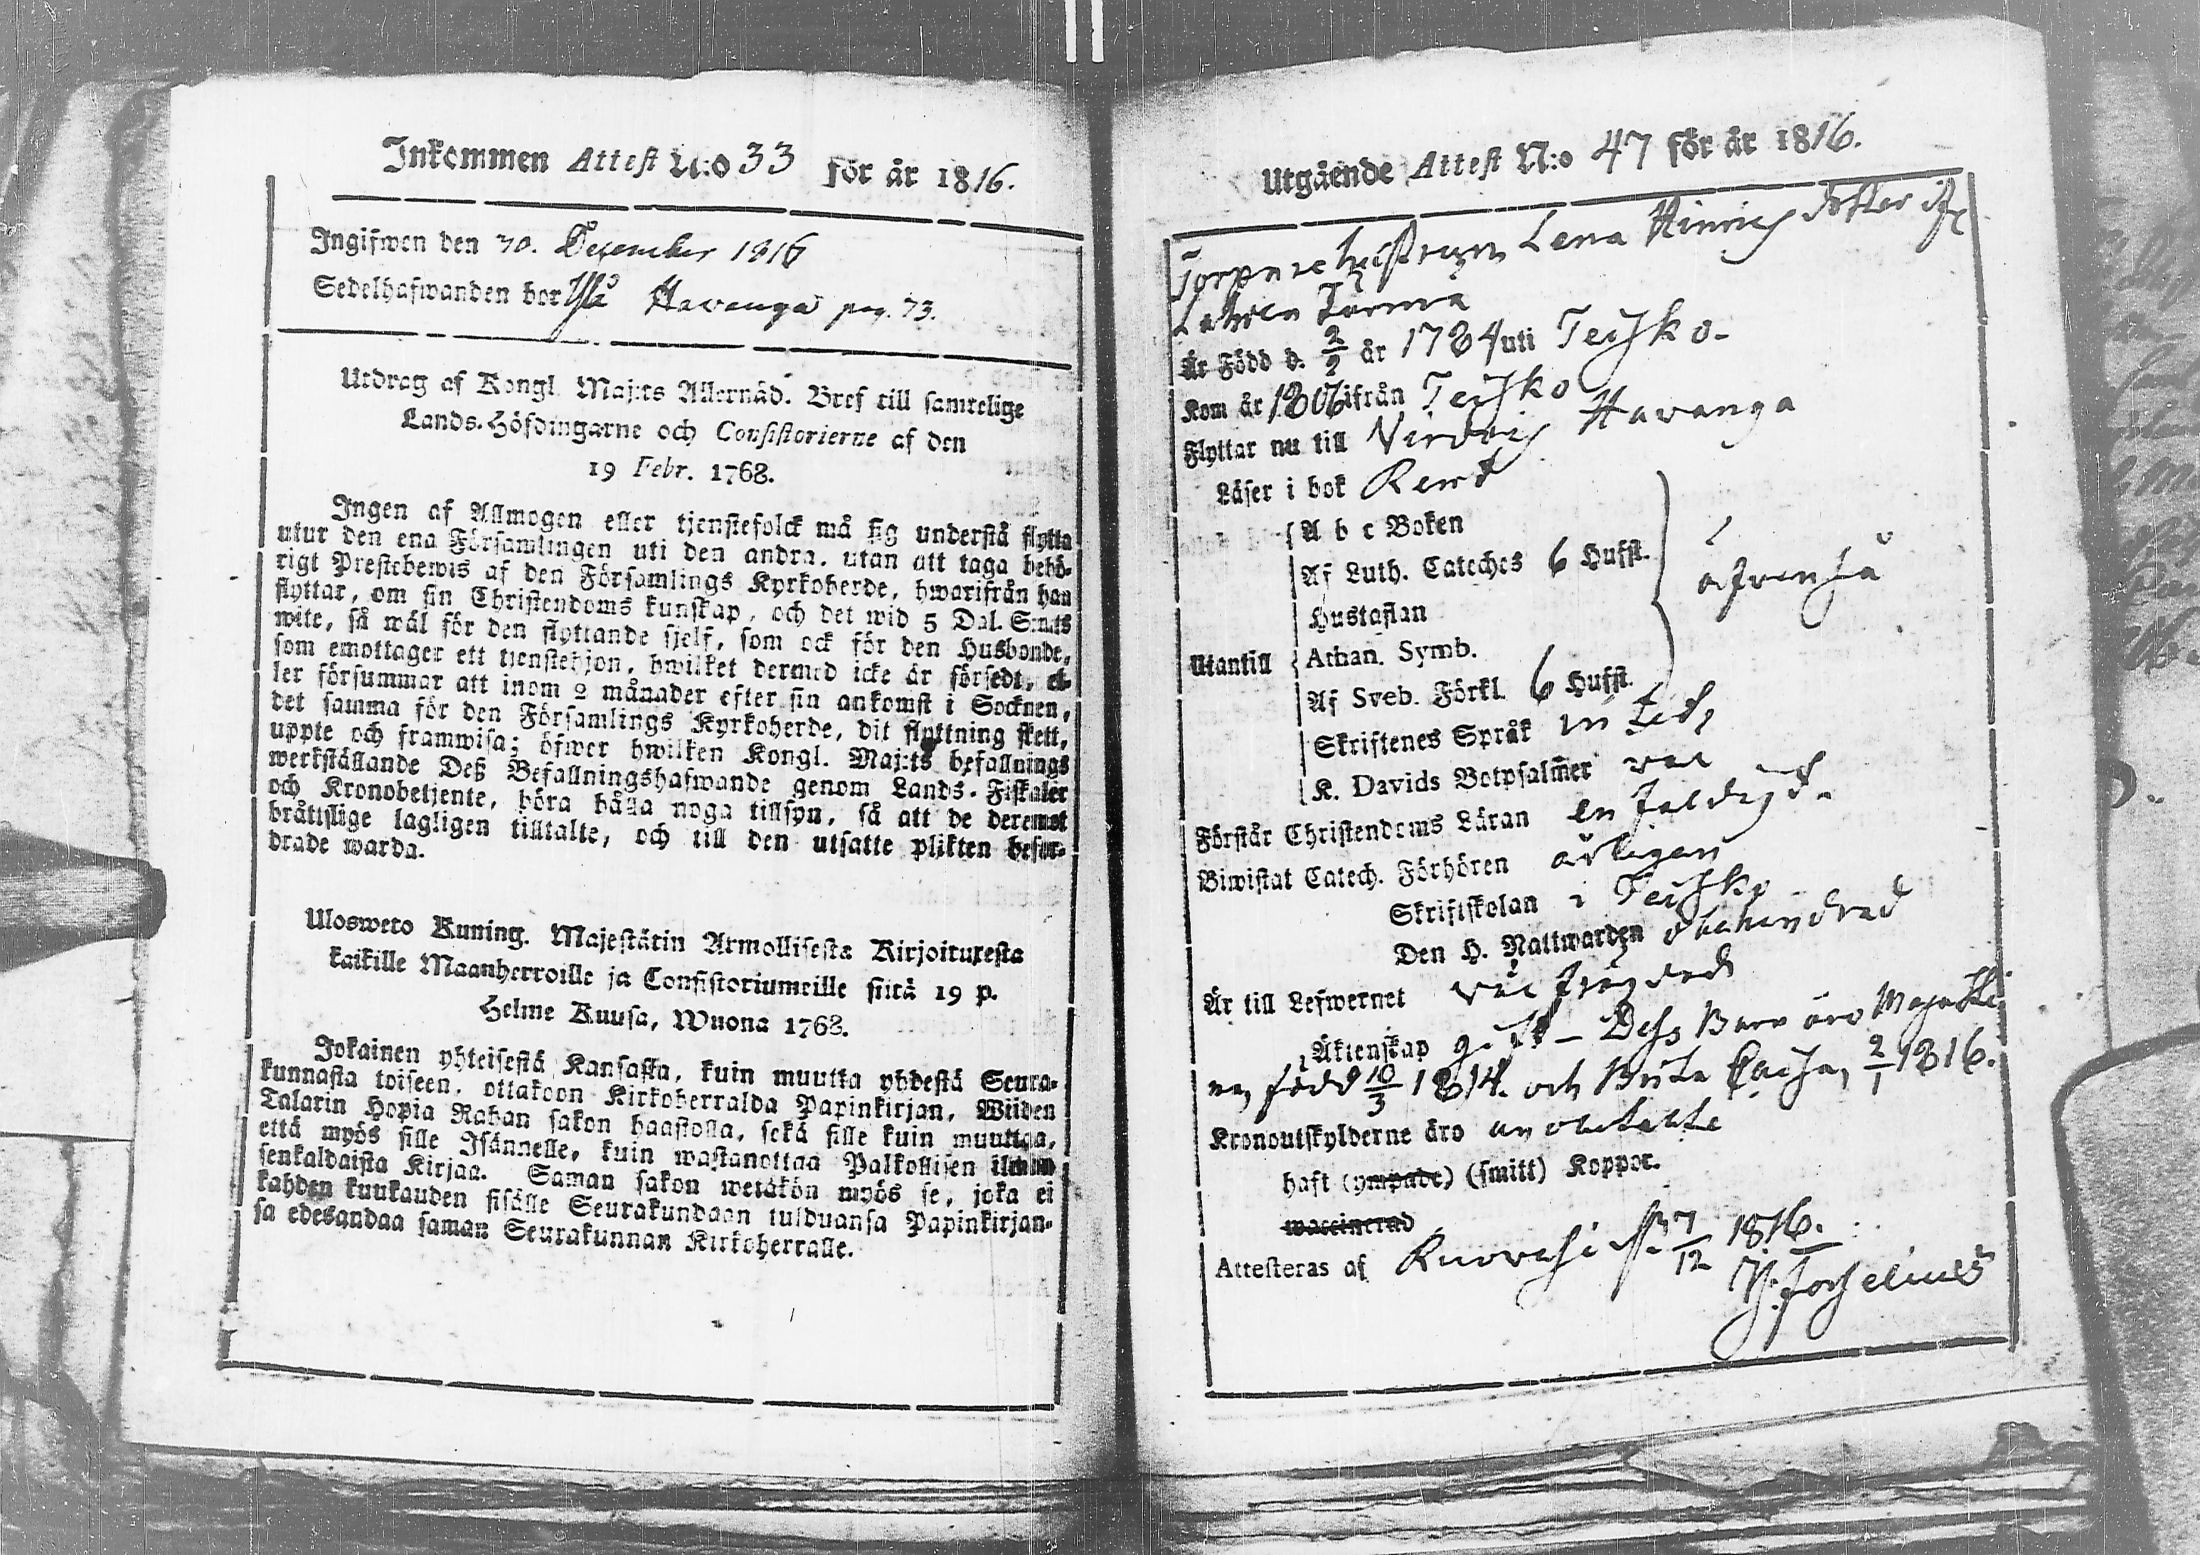 Inkommen Attest N:o 33 för år 1816.
Ingifwen den 30. December 1816
Sedelhafwanden bor på Havanga pag. 73.
Utdrag af Kongl. Maj:ts Allernåd. Bref till samtelige
Lands-Höfdingarne och Consistorierne af den
19 Febr. 1768.
Ingen af Allmogen eller tjenstefolck må sig understå flytta
utur den ena Församlingen uti den andra, utan att taga behö-
rigt Prestebewis af den Församlings Kyrkoherde, hwarifrån han
flyttar, om sin Christendoms kunskap, och det wid 5 Dal. S:mts
wite, så wäl för den flyttande sjelf, som ock för den Husbonde,
som emottager ett tjenstehjon, hwilket dermed icke är försedt, el-
ler försummar att inom 2 månader efter sin ankomst i Socknen,
det samma för den Församlings Kyrkoherde, dit flyttning skett,
uppte och framwisa; öfwer hwilken Kongl. Maj:ts befallnings
werkställande Deß Befallningshafwande genom Lands-Fiskaler
och Kronobetjente, böra hålla noga tillsyn, så att de deremot
bråttslige lagligen tilltalte, och till den utsatte plikten befor-
drade warda.
Ulosweto Kuning. Majestätin Armollisesta Kirjoituxesta
kaikille Maanherroille ja Consistoriumeille siitä 19 p.
Helme Kuusa, Wuona 1768.
Jokainen yhteisestä Kansasta, kuin muutta yhdestä Seura-
kunnasta toiseen, ottakoon Kirkoherralda Papinkirjan, Wiiden
Talarin Hopia Rahan sakon haastolla, sekä sille kuin muuttaa,
että myös sille Isännelle, kuin wastanottaa Palkollisen ilman
senkaldaista Kirjaa. Saman sakon wetäkön myös se, joka ei
kahden kuukauden sisälle Seurakundaan tulduansa Papinkirjan-
sa edesandaa saman Seurakunnan Kirkoherralle.
Utgående Attest N:o 47 för år 1816.
Torpare hustrun Lena Hinrics dotter
Är Född d. 2/2 år 1784 uti Teisko.
Kom år 1806 ifrån Teisko
Flyttar nu till Virdois Havanga
Läser i bok Rent
A b c Boken
Af Luth. Cateches 6 Hufst.
Hustaflan
äfvenså
Utantill
Athan. Symb.
Af Sveb. Förkl. 6 Hufst.
Skriftenes Språk
K. Davids Botpsalmer
Förstår Christendoms Läran enfaldigt.
Biwistat Catech. Förhören årligen
Skriftskolan i Teisko
Den H. Nattwarden obehindrad
Är till Lefwernet väl frägdad
Äktenskap gift – Dess Barn äro
född 10/3 1814. och Brita Caisa, 2/1 1816.
Kronoutskylderne äro
haft (ympade) (smitt) Koppor.
waccinerad
Attesteras af Ruovesi 7/12 1816.